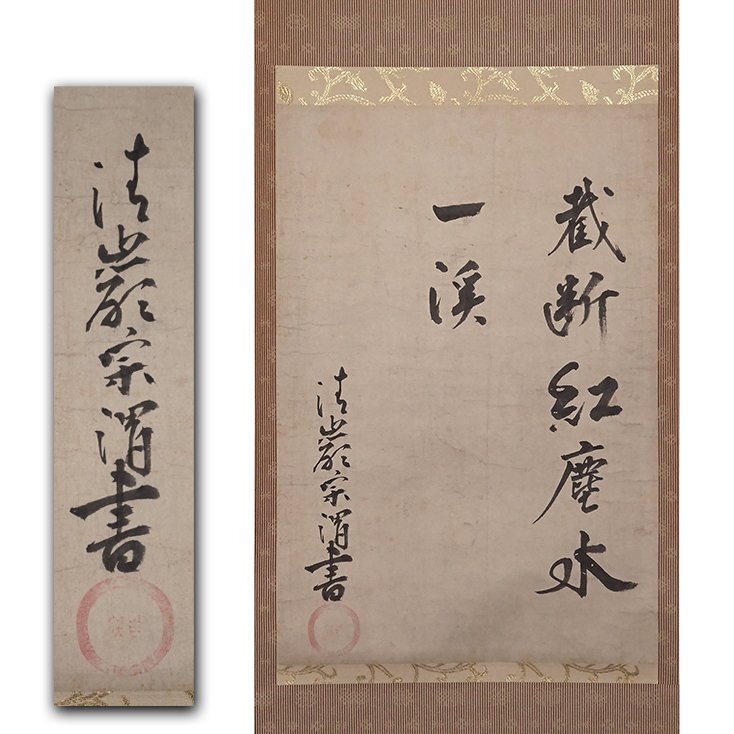 截断紅塵水
一溪
清巌宗渭書
清巌宗渭書